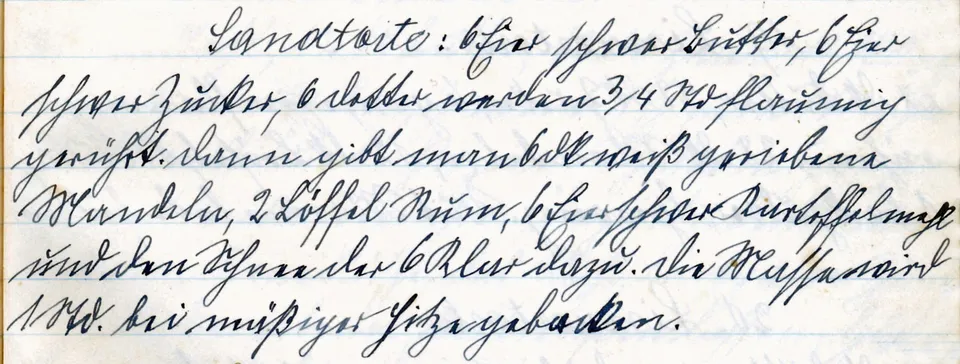 Sandtorte: 6 Eier schwer Butter, 6 Eier
schwer Zucker, 6 Dotter werden 3/4 Std flaumig
gerührt. Dann gibt man 6 dk weiß geriebene
Mandeln, 2 Löffel Rum, 6 Eier schwer Kartoffelmehl
und den Schnee der 6 Klar dazu. Die Masse wird
1 Std. bei mäßiger Hitze gebacken.